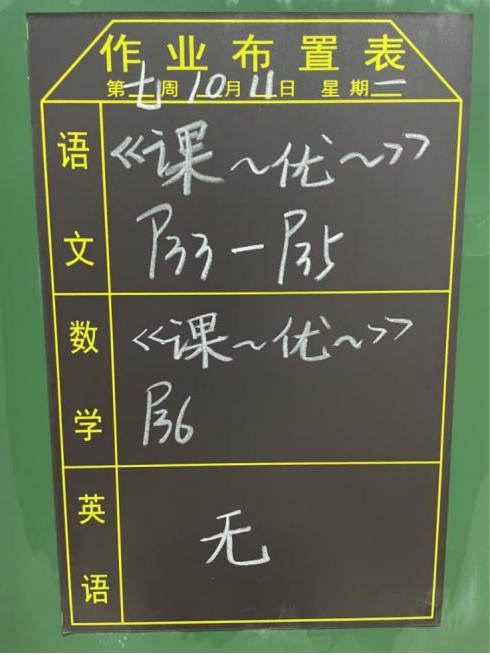 作业布置表
第七周 10月11日 星期一
语文
《课～优～》
P33－P35
数学
《课～优～》
P36
英语
无